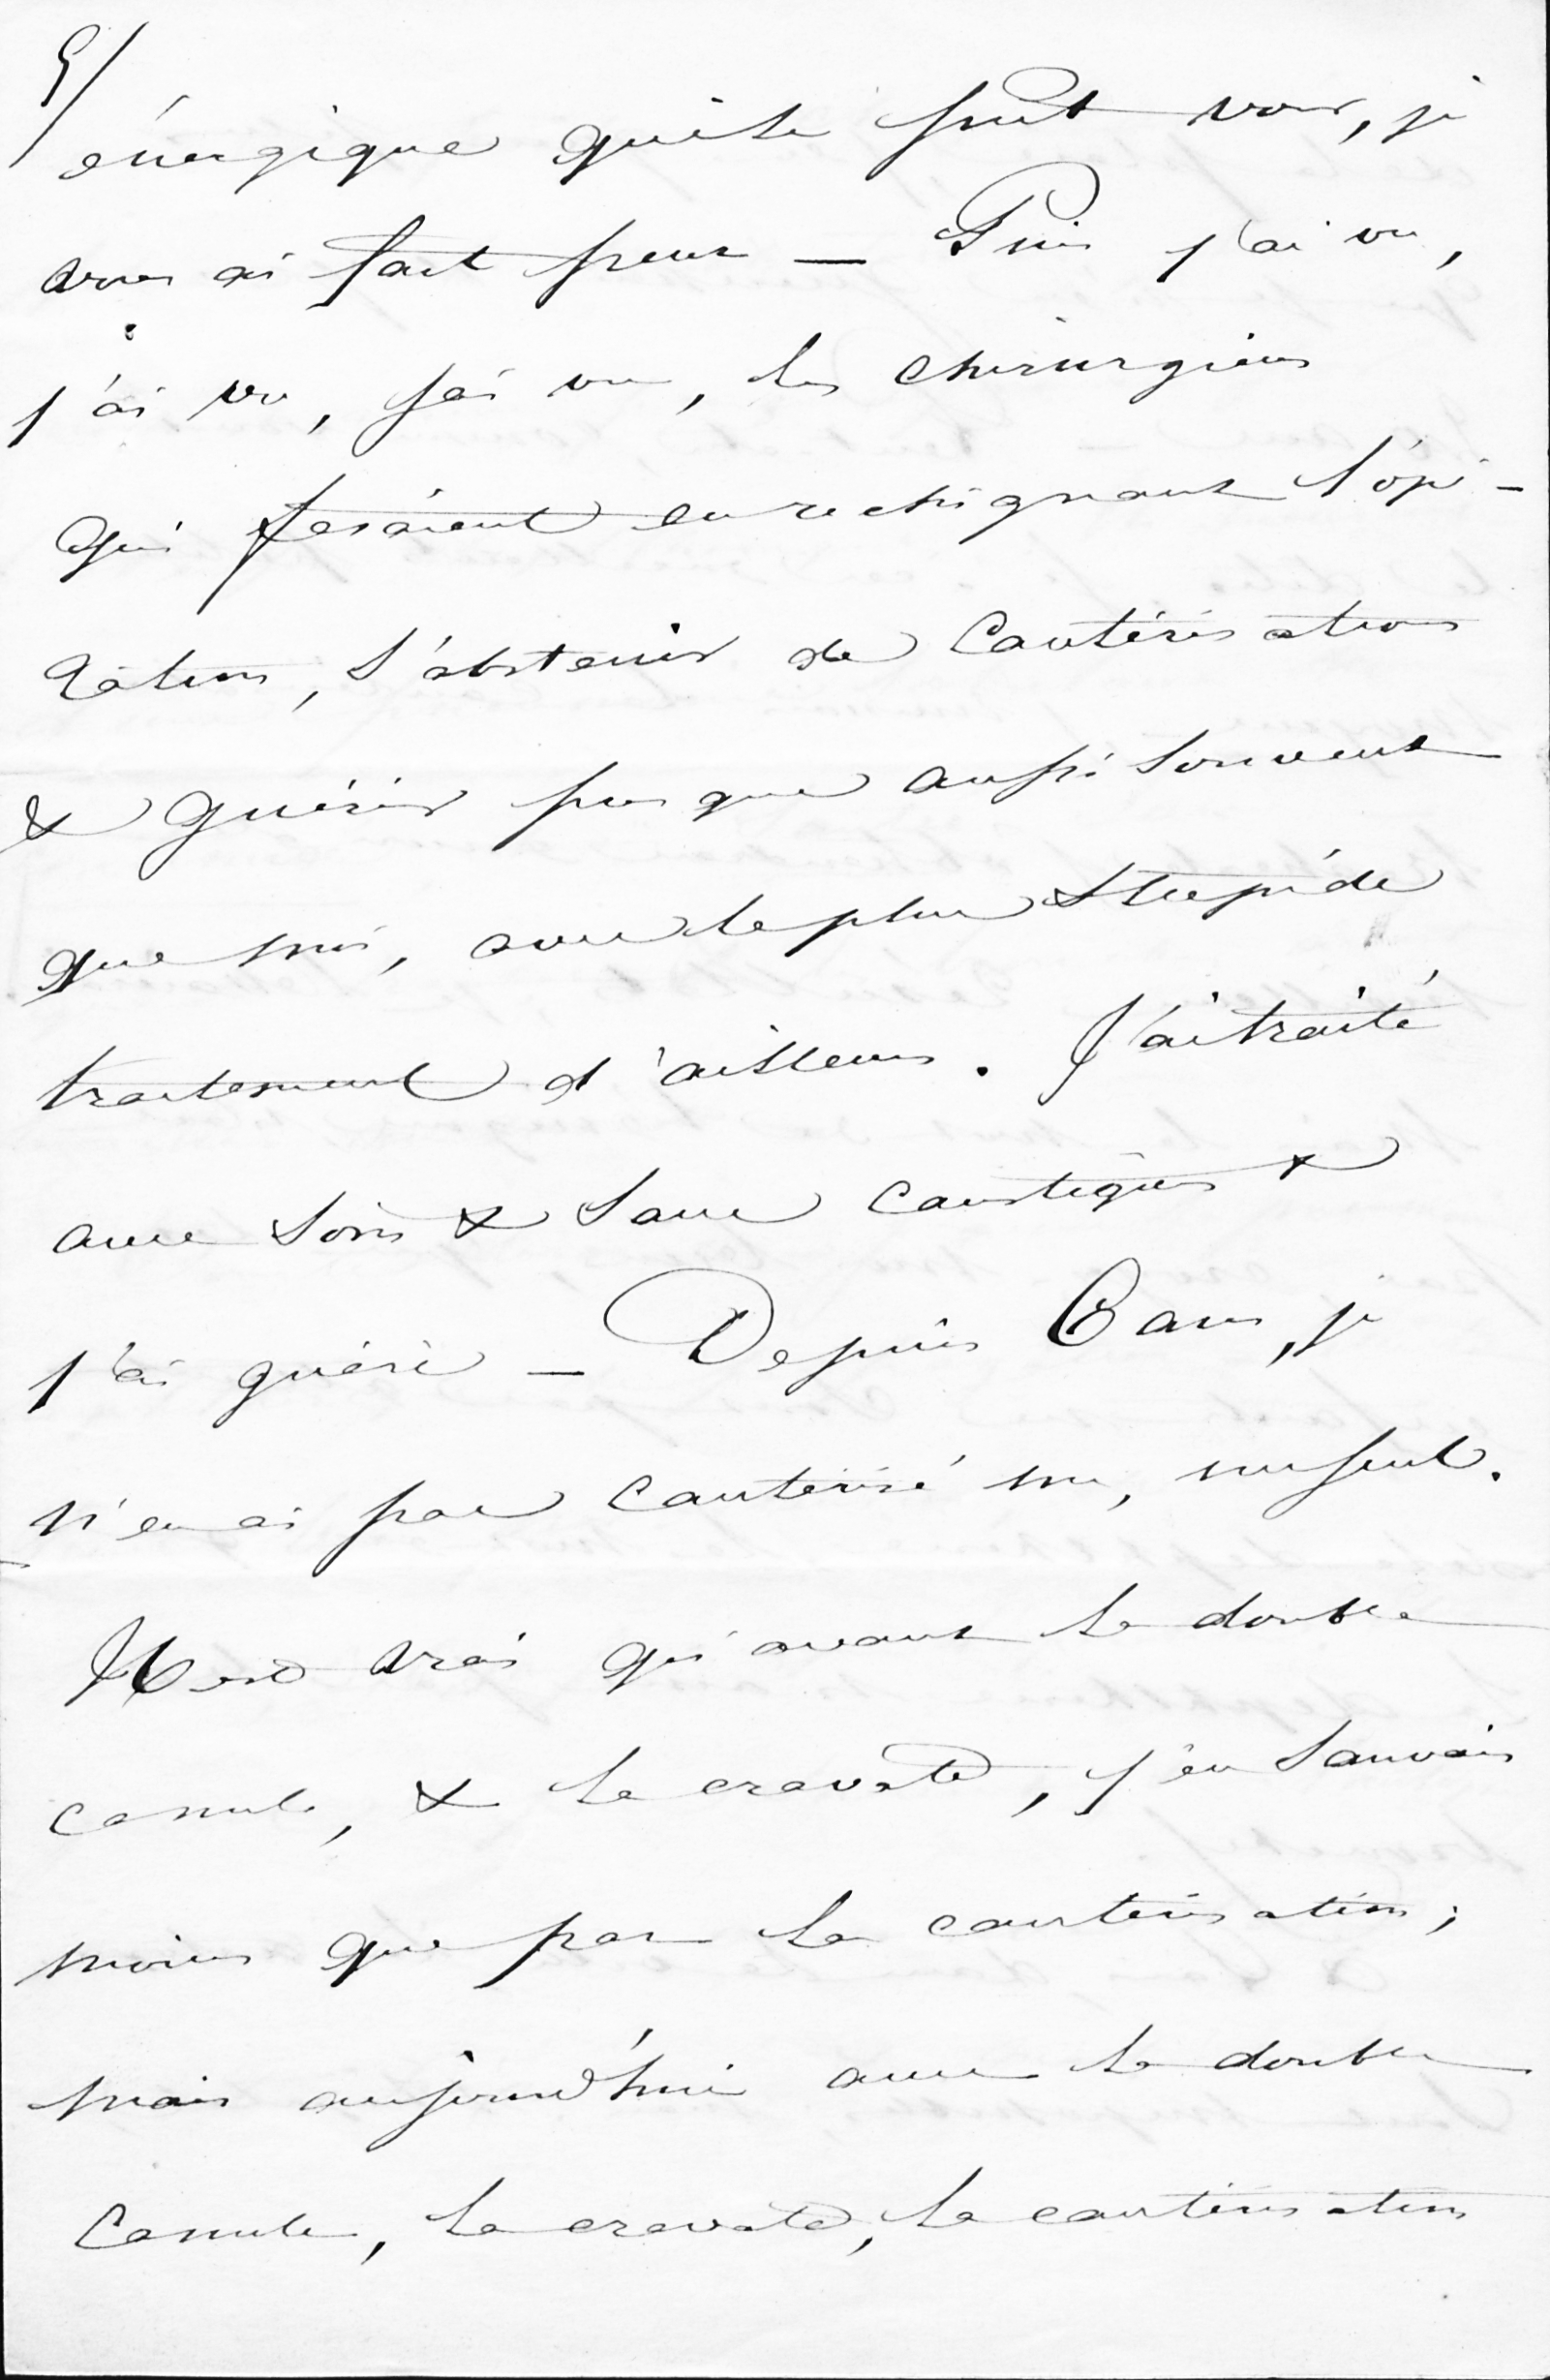 5/
énergique qui le fut vous, je
vous ai fait peur — Puis j'ai vu,
j'ai vu, j'ai vu, les chirurgiens
qui fesaient en rechignant l'opé-
ration, s'abstenir de cautérisations
& guérir presque aussi souvent
que moi, avec le plus stupide
traitement d'ailleurs. J'ai traité
avec soin & sans caustiques &
j'ai guéri — Depuis 6 ans, je
n'en ai pas cautérisé un, un seul.
Il est vrai qu'avant la double
canule, & la cravate, j'en sauvais
moins que par la cautérisation;
mais aujourd'hui avec la double
canule, la cravate, la cautérisation